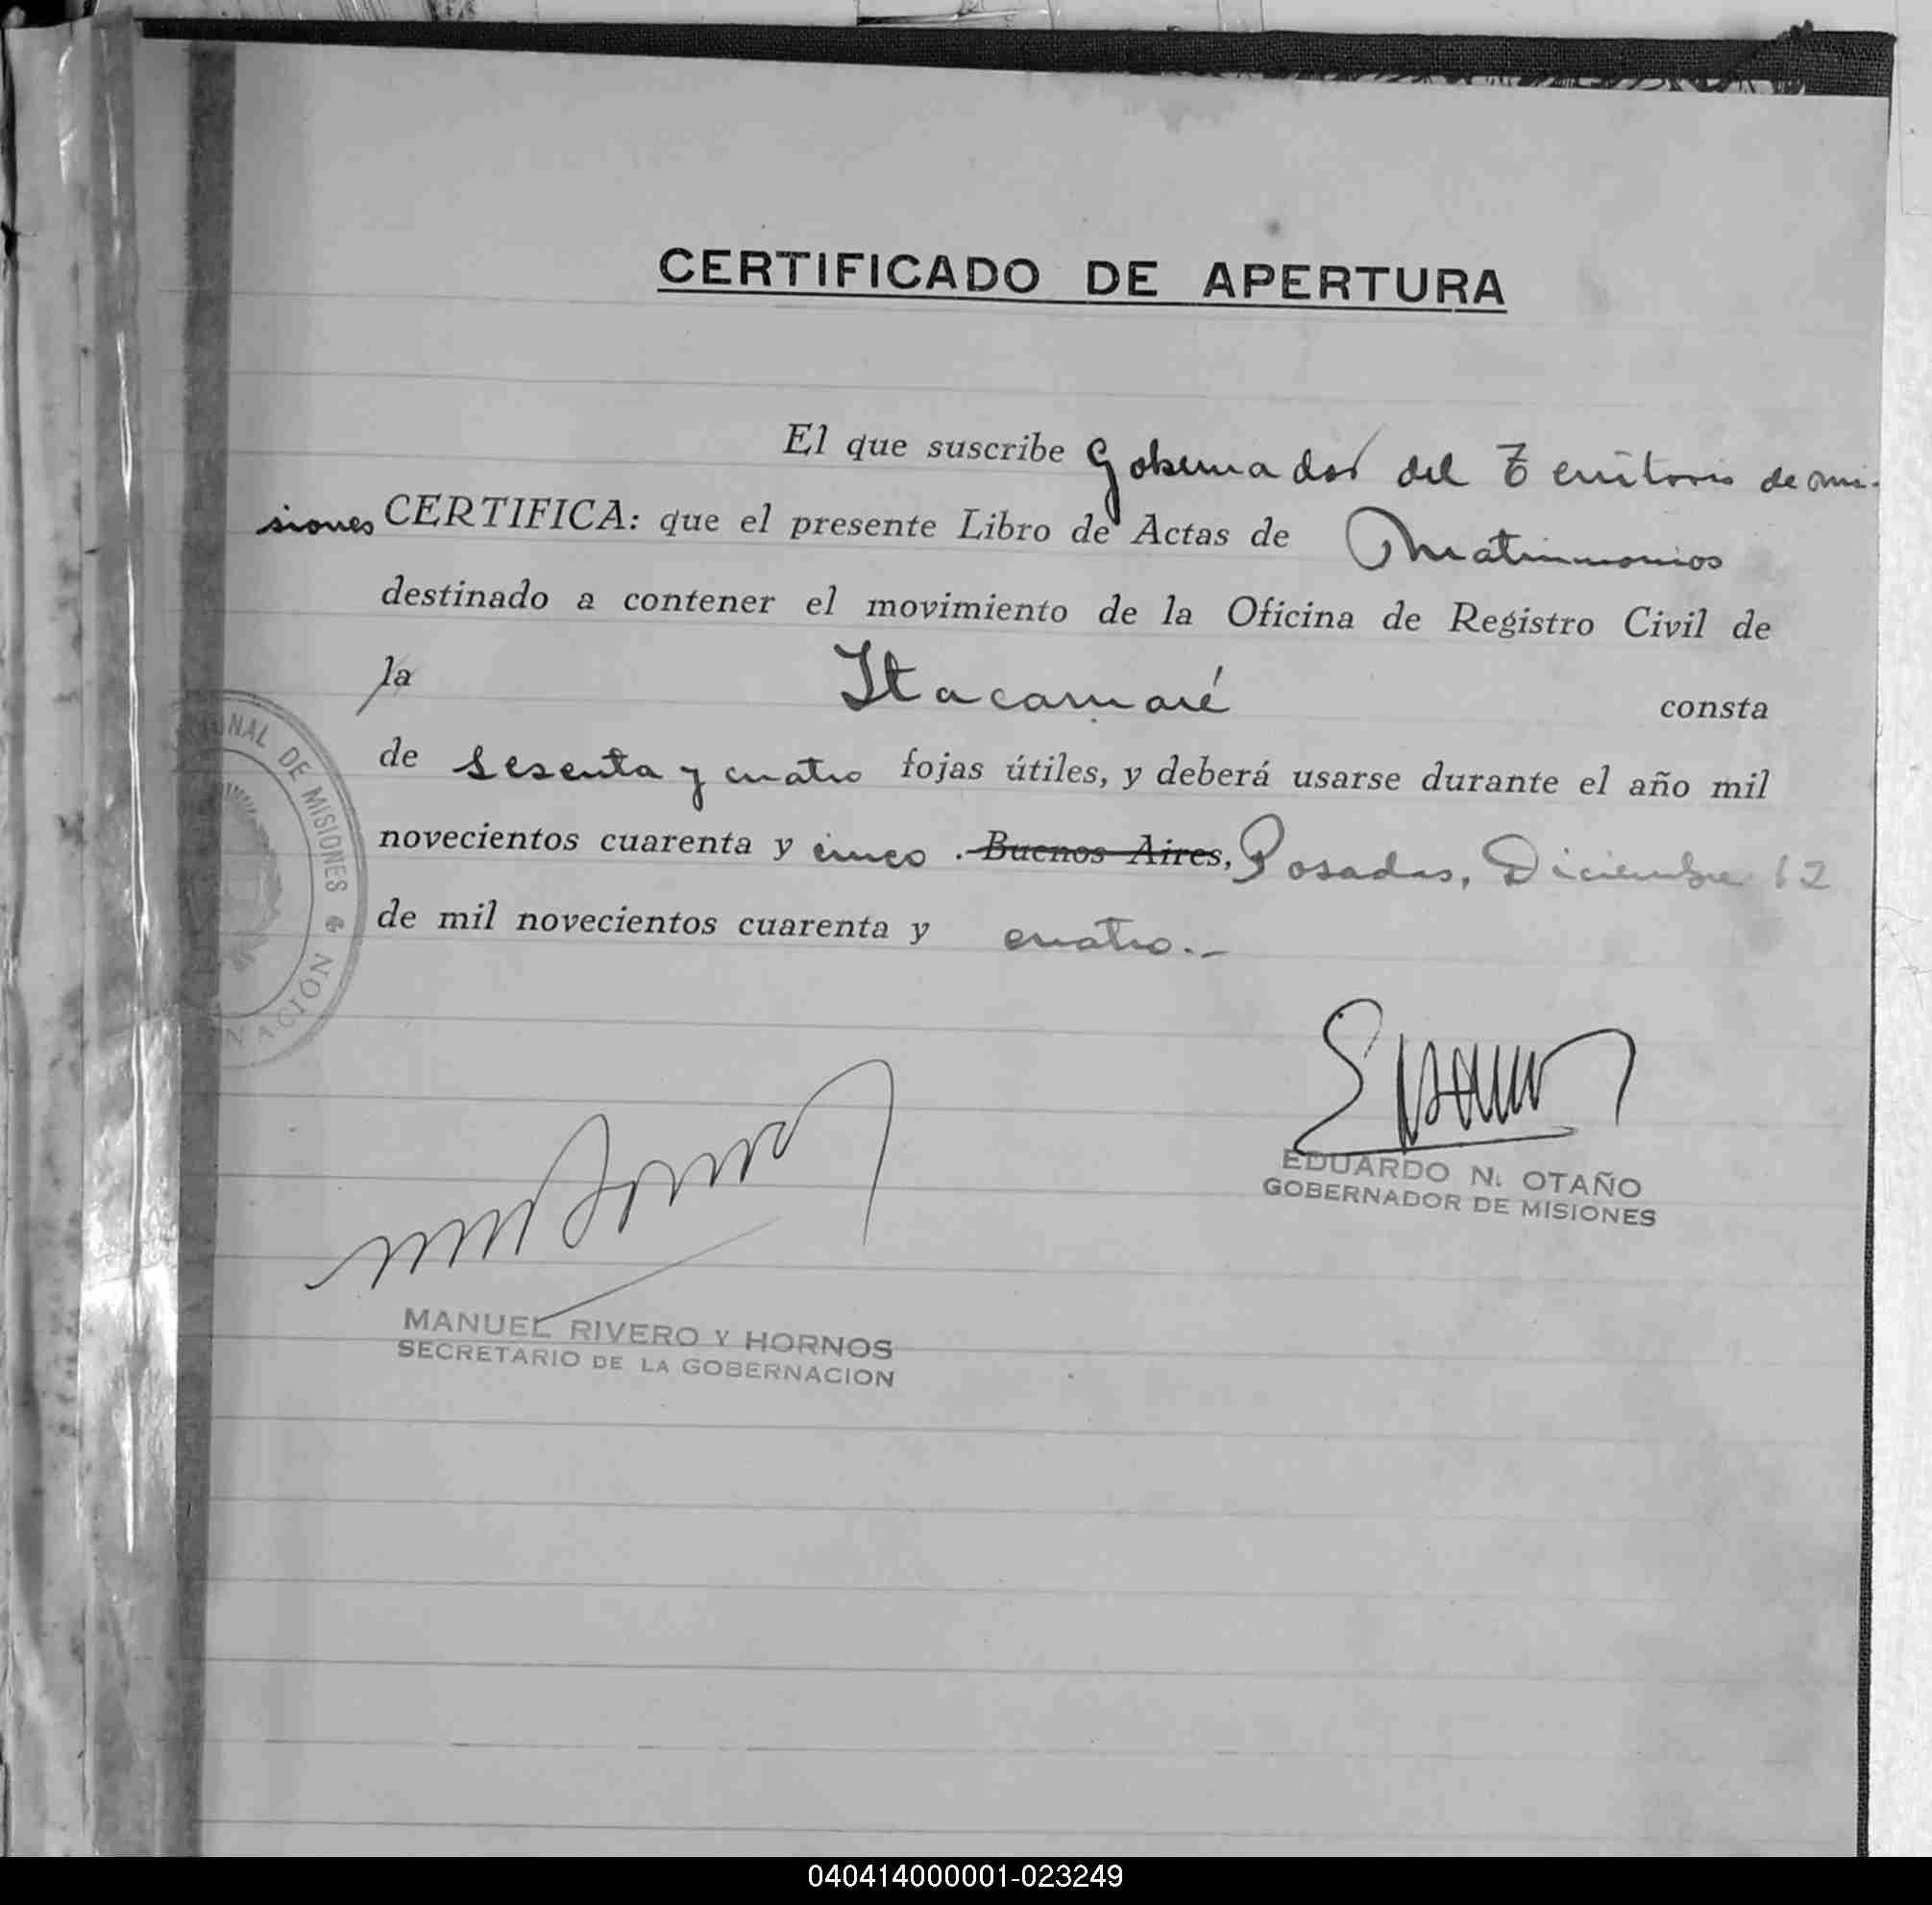 CERTIFICADO DE APERTURA
El que suscribe Gobernador del Territorio de Mi-
siones CERTIFICA: que el presente Libro de Actas de Matrimonios
destinado a contener el movimiento de la Oficina de Registro Civil de
la Itacaruaré consta
de sesenta y cuatro fojas útiles, y deberá usarse durante el año mil
novecientos cuarenta y cinco. Buenos Aires, Posadas, Diciembre 12
de mil novecientos cuarenta y cuatro.-
NAL DE MISIONES
NACIÓN
EDUARDO N. OTAÑO
GOBERNADOR DE MISIONES
MANUEL RIVERO Y HORNOS
SECRETARIO DE LA GOBERNACION
040414000001-023249